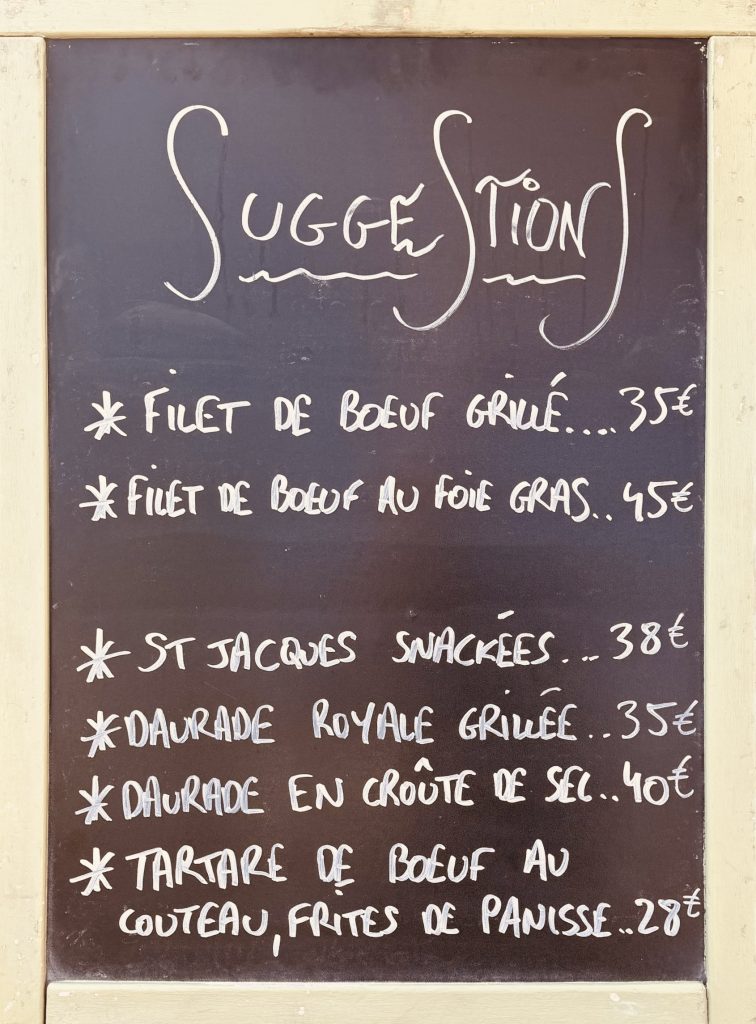 SUGGESTIONS
* FILET DE BOEUF GRILLÉ.... 35€
* FILET DE BOEUF AU FOIE GRAS.. 45€
* ST JACQUES SNACKÉES... 38€
* DAURADE ROYALE GRILLÉE.. 35€
* DAURADE EN CROÛTE DE SEL.. 40€
* TARTARE DE BOEUF AU
COUTEAU, FRITES DE PANISSE.. 28€